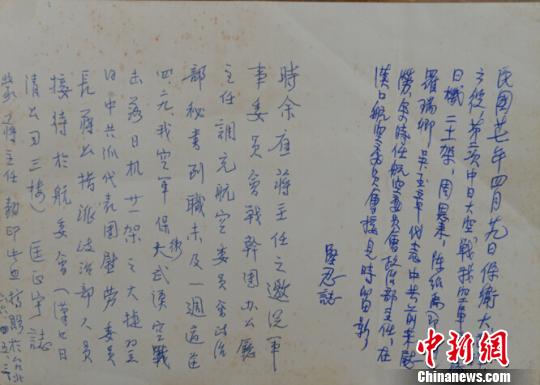 民國廿七年四月廿九日保衛大
之役第二次中日大空戰我空軍
日機二十架,周恩來,陳紹禹
羅瑞卿 吳玉章代表中共前來慰
勞,余時任航空委員會政治部主任在
漢口航空委員會接見時留影
堅忍誌
時余應蔣主任之邀從軍
事委員會戰幹團辦公廳
主任調充航空委員會政治
部秘書到職未及一週適逢
四二九,我空軍保衛大武漢空戰
击落日机廿一架之大捷翌
日中共派代表團慰勞委員
長蔣公指派政治部人員
接待於航委會(漢口日
清公司三樓) 匡正宇誌
蒙 蔣主任 翻印 於台北
中新网